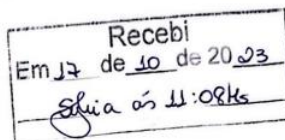 Recebi
Em 17 de 10 de 20 23
às 11:08Hs